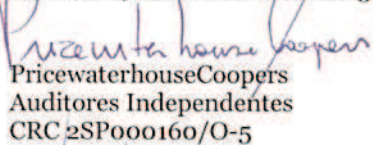 Pricewaterhouse Coopers
PricewaterhouseCoopers
Auditores Independentes
CRC 2SP000160/O-5